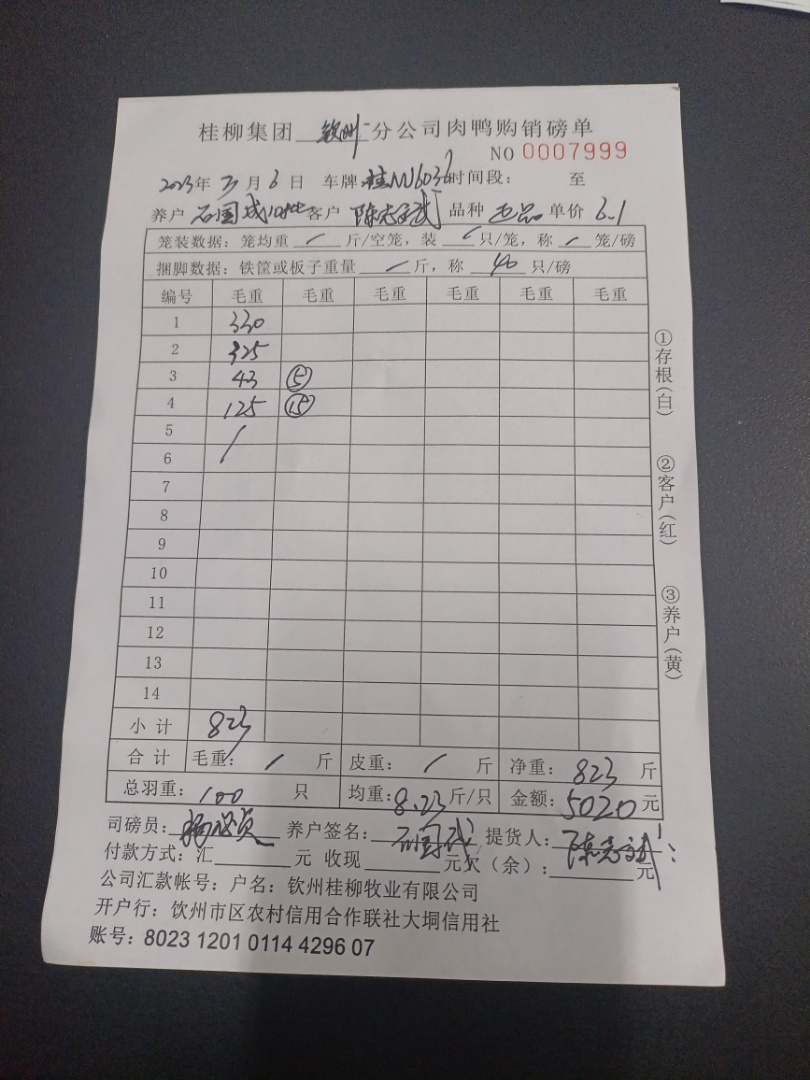 桂柳集团 钦州 分公司肉鸭购销磅单
NO 0007999
2023年 3月 6日 车牌:桂NU6036 时间段: 至
养户 石国成 客户 陈志武 品种 单价 6.1
笼装数据:笼均重 / 斤/空笼,装 / 只/笼,称 / 笼/磅
捆脚数据:铁筐或板子重量 / 斤,称 40 只/磅
编号 毛重 毛重 毛重 毛重 毛重 毛重
1 330
2 325
3 43 ⑤
4 125 ⑮
5 /
6
7
8
9
10
11
12
13
14
小计 823
合计 毛重: / 斤 皮重: / 斤 净重: 823 斤
总羽重: 100 只 均重: 8.23 斤/只 金额: 5020 元
司磅员: 养户签名: 石国成 提货人: 陈志武
付款方式:汇 元 收现 元欠(余): 元
公司汇款帐号:户名:钦州桂柳牧业有限公司
开户行:钦州市区农村信用合作联社大垌信用社
账号:8023 1201 0114 4296 07
①存根(白)
②客户(红)
③养户(黄)